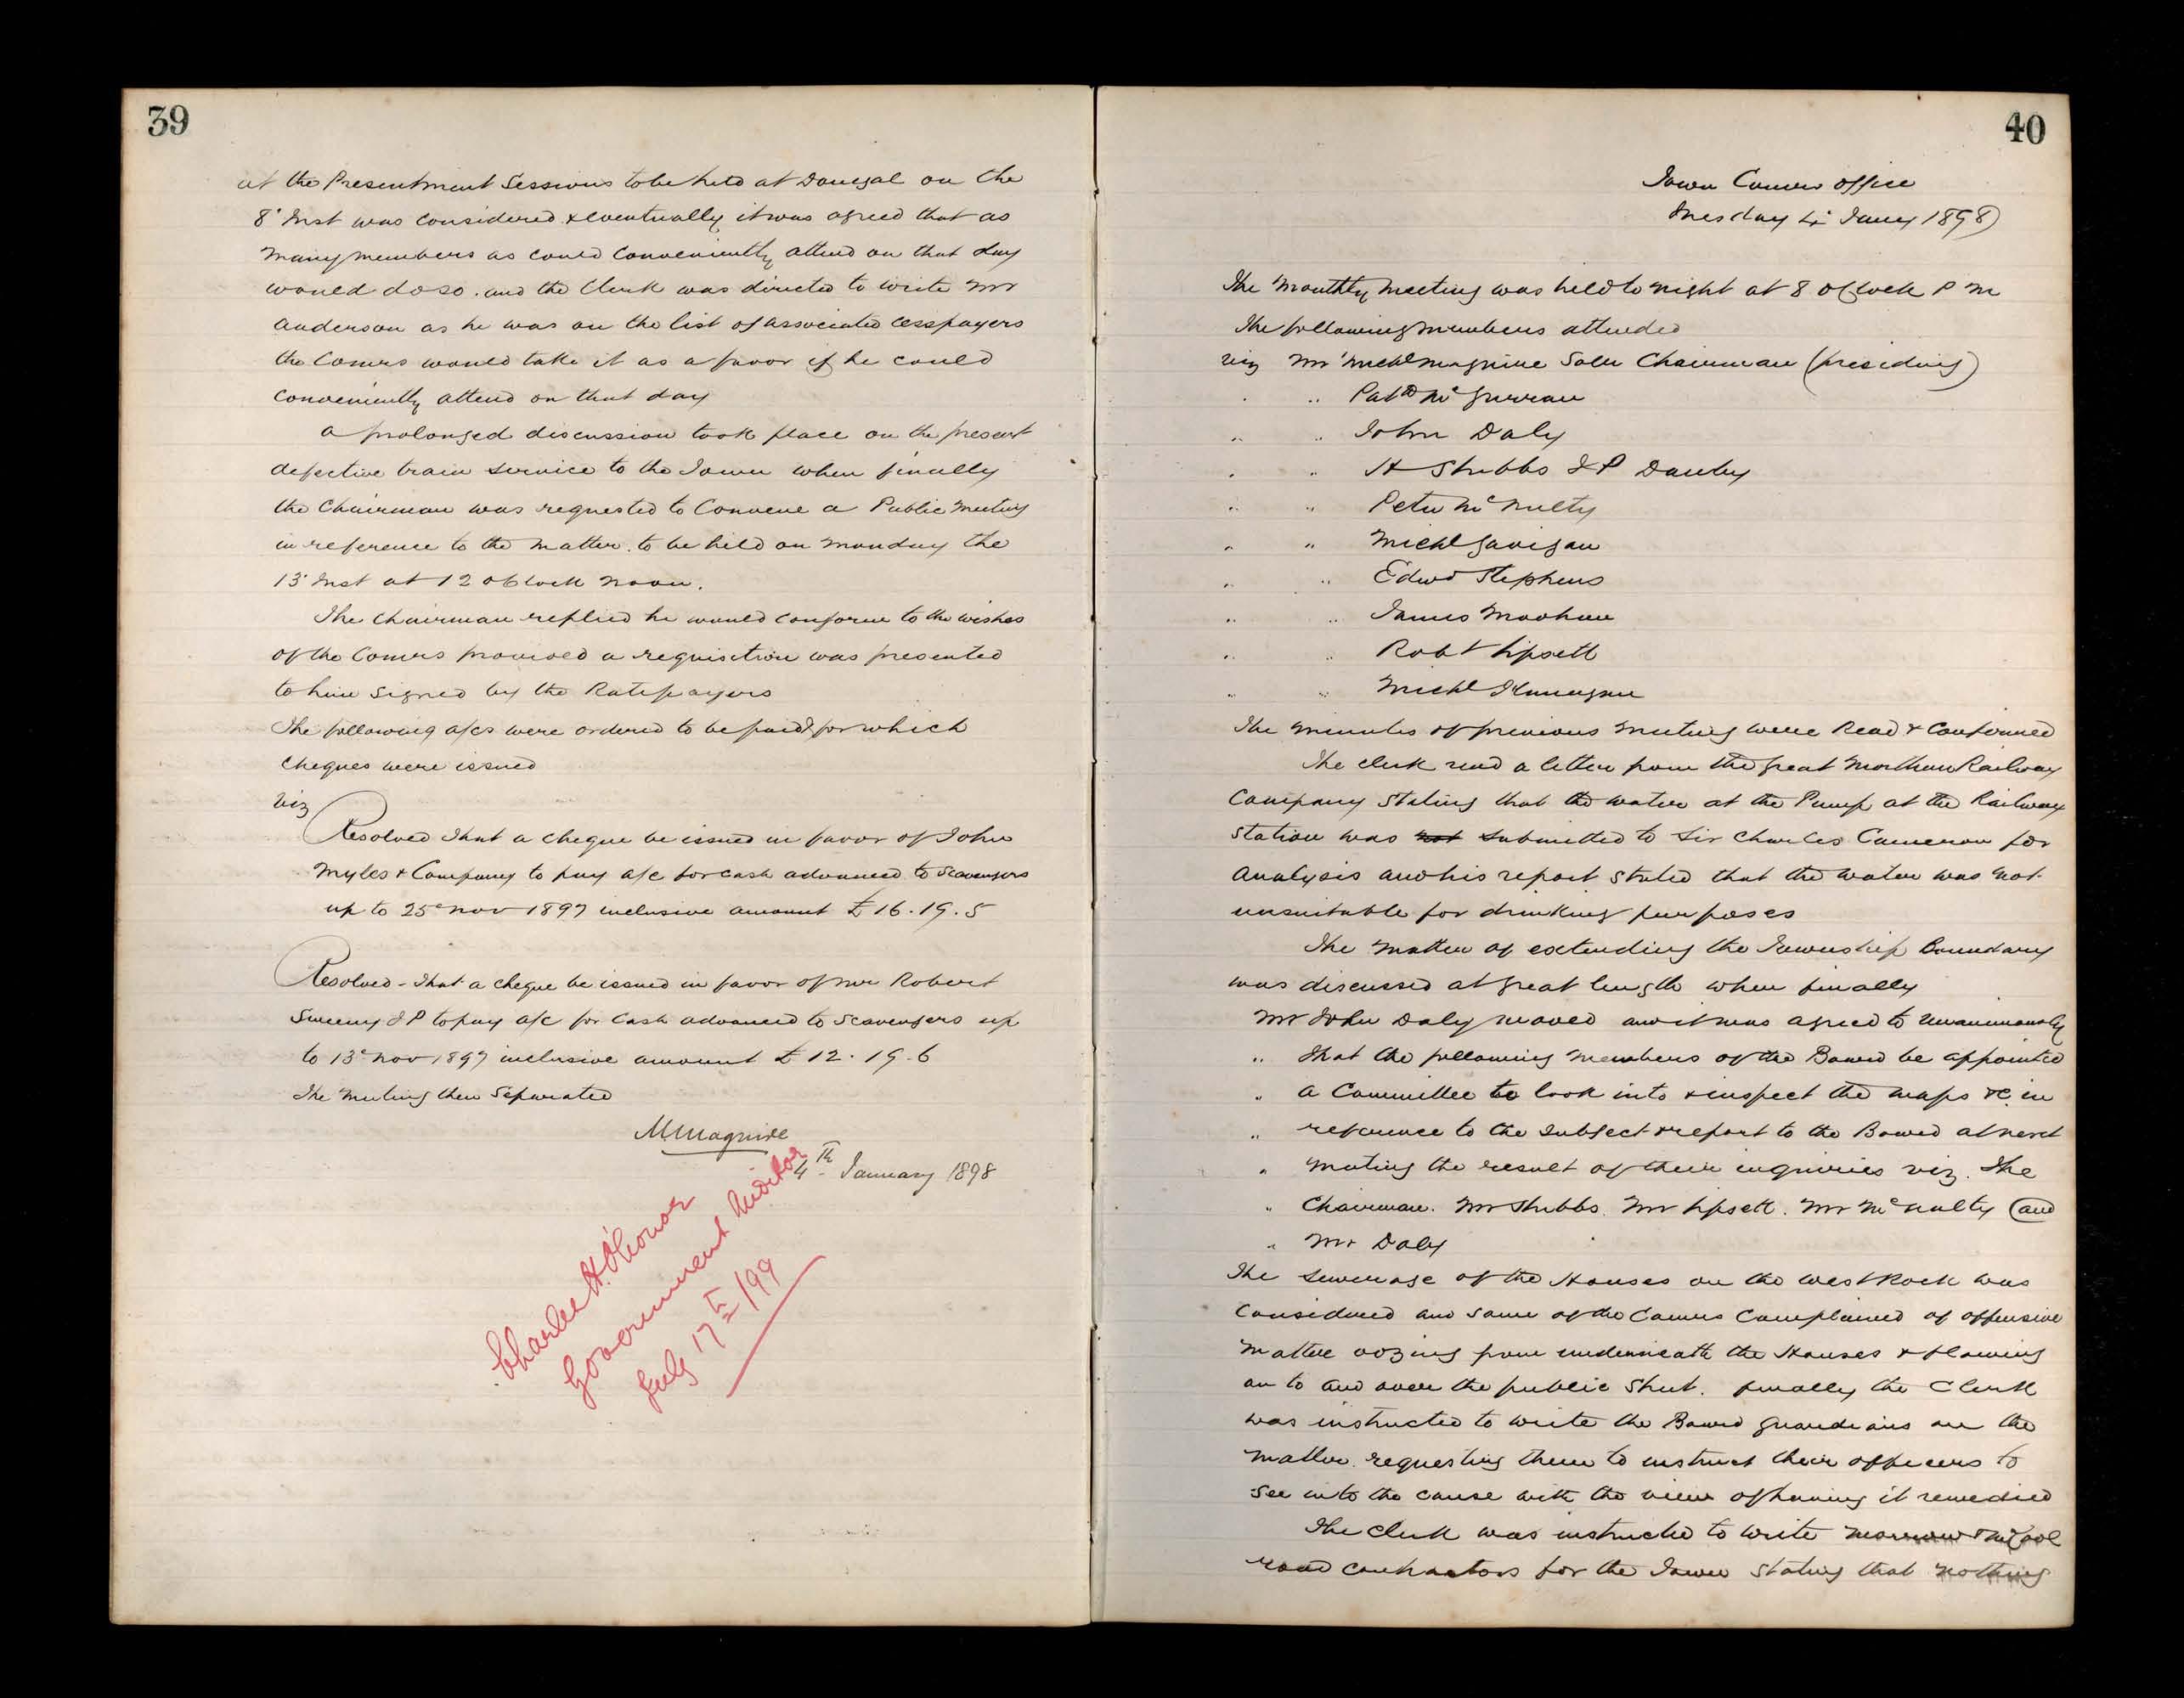 39
at the Presentment Sessions to be held at Donegal on the
8th Inst was considered & eventually it was agreed that as
many members as could conveniently attend on that day
would do so. and the Clerk was directed to write Mr
Anderson as he was on the list of associated cesspayers
the Comrs would take it as a favor if he could
conveniently attend on that day
A prolonged discussion took place on the present
defective train service to the Town when finally
the Chairman was requested to Convene a Public Meeting
in reference to the matter. to be held on Monday the
13th Inst at 12 oClock noon.
The Chairman replied he would conform to the wishes
of the Comrs provided a requisition was presented
to him signed by the Ratepayers
The following a/cs were ordered to be paid & for which
Cheques were issued
Viz
Resolved That a cheque be issued in favor of John
Myles & Company to pay a/c for cash advanced to Scavengers
up to 25th Nov 1897 inclusive amount £16.19.5
Resolved - That a cheque be issued in favor of Mr Robert
Sweeny J P to pay a/c for Cash advanced to Scavengers up
to 13th Nov 1897 inclusive amount £12.19.6
The Meeting then Separated
M Maguire
4th January 1898
Charles H. O'Conor
Government Auditor
July 17th/99
40
Town Comrs office
Tuesday 4th Jany 1898
The Monthly Meeting was held to night at 8 oClock P M
The following members attended
viz Mr Michl Maguire Solr Chairman (presiding)
" " Patk McGurran
" " John Daly
" " H Stubbs J P Danby
" " Peter McNulty
" " Michl Gavigan
" " Edwd Stephens
" " James Moohan
" " Robt Lipsett
" " Michl Flanagan
The minutes of previous meeting were Read & Confirmed
The clerk read a letter from the Great Northern Railway
Company stating that the water at the Pump at the Railway
Station was not submitted to Sir Charles Cameron for
Analysis and his report stated that the water was not
unsuitable for drinking purposes
The matter of extending the Township Boundary
was discussed at great length when finally
Mr John Daly moved and it was agreed to unanimously
" That the following members of the Board be appointed
" a Committee to look into & inspect the maps &c in
" reference to the subject & report to the Board at next
" meeting the result of their inquiries viz. The
" Chairman. Mr Stubbs. Mr Lipsett. Mr McNulty and
" Mr Daly
The sewerage of the Houses on the West Rock was
Considered and some of the Comrs Complained of offensive
Matter oozing from underneath the Houses & flowing
on to and over the public street. finally the Clerk
was instructed to write the Board Guardians on the
Matter requesting them to instruct their officers to
see into the cause with the view of having it remedied
The Clerk was instructed to write Morrow & McCool
road contractors for the Town stating that nothing